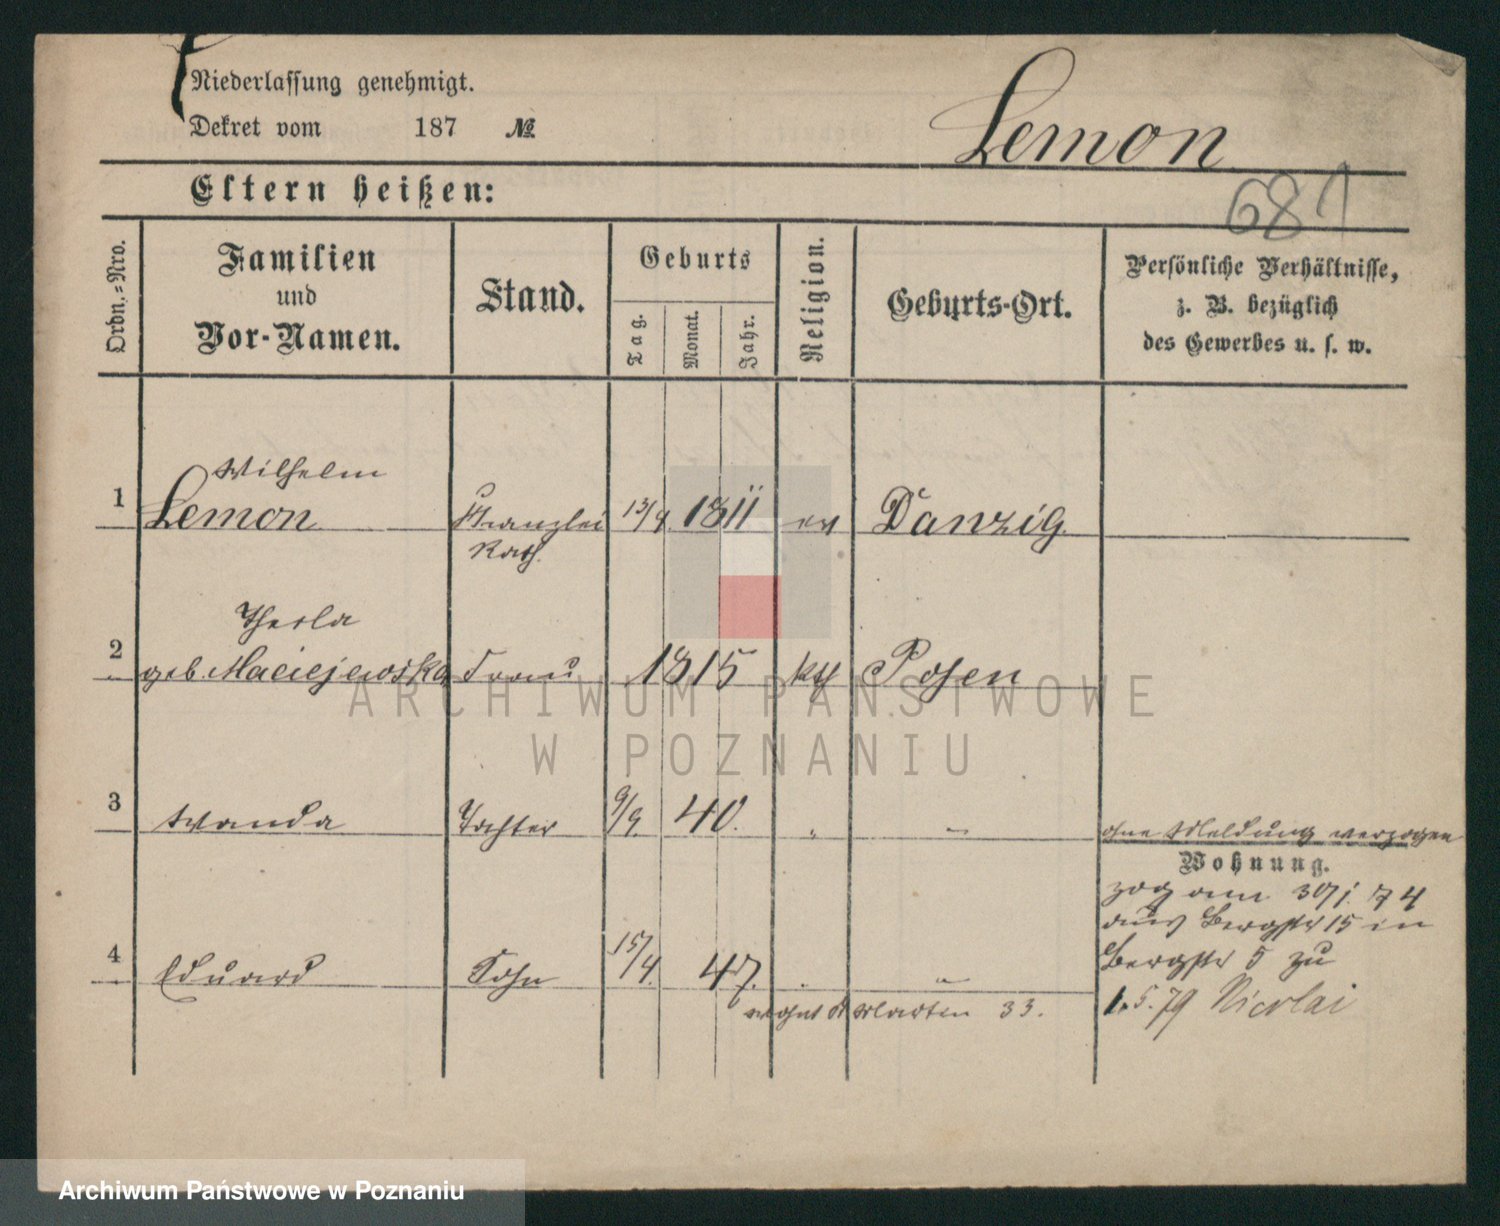 Niederlassung genehmigt.
Dekret vom 187 №
Lemon
Eltern heißen:
681
Ordn.-Nro.
Familien
und
Vor-Namen.
Stand.
Geburts
Tag.
Monat.
Jahr.
Religion.
Geburts-Ort.
Persönliche Verhältnisse,
z. B. bezüglich
des Gewerbes u. s. w.
Wilhelm
1 Lemon Kanzlei 13/4. 1811 ev Danzig
Rath.
2 geb. Maciejewska Frau 1815 kth Posen
3 Wanda Tochter 9/9. 40. " " ohne Meldung verzogen
Wohnung.
zog am 30/1. 74
aus Bergstr 15 in
4 Eduard Sohn 15/4. 47. " Bergstr 5 zu
wohnt St Martin 33.
1.5.79 Nicolai
ARCHIWUM PAŃSTWOWE
W POZNANIU
Archiwum Państwowe w Poznaniu